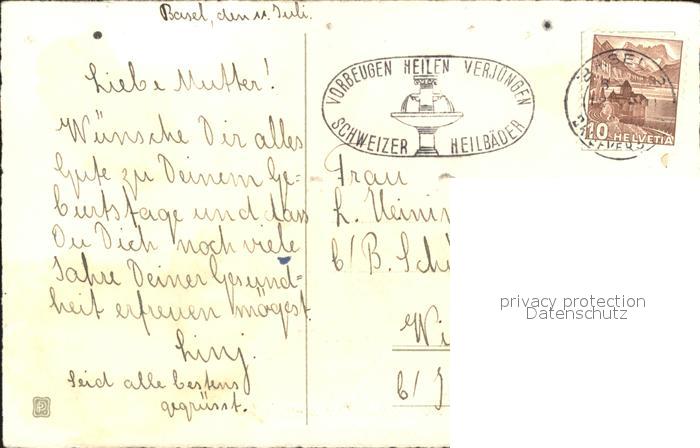 Basel, den 11. Juli.
Liebe Mutter!
Wünsche Dir alles
Gute zu Deinem Ge-
burtstage und dass
Du Dich noch viele
Jahre Deiner Gesund-
heit erfreuen mögest.
Seid alle bestens
gegrüsst.
VORBEUGEN HEILEN VERJÜNGEN
SCHWEIZER HEILBÄDER
BASEL
10 HELVETIA
Frau
L.
b/ B.
b/
privacy protection
Datenschutz